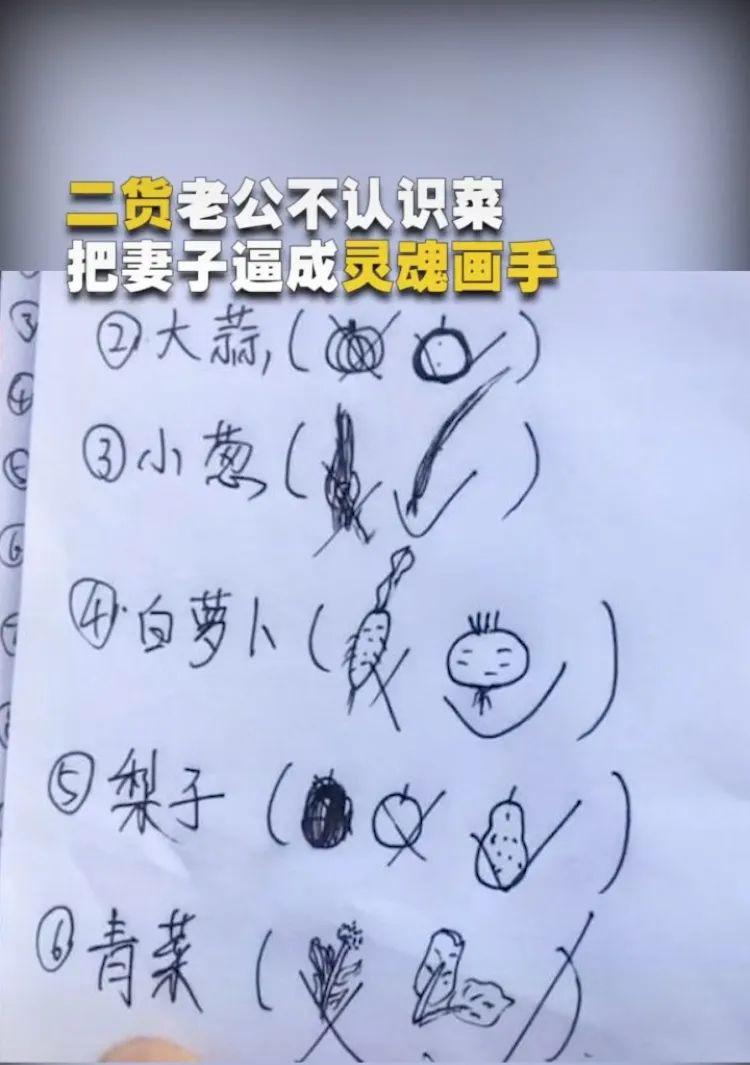 二货老公不认识菜
把妻子逼成灵魂画手
②大蒜,( )
③小葱( )
④白萝卜( )
⑤梨子( )
⑥青菜( )
③
④
⑤
⑥